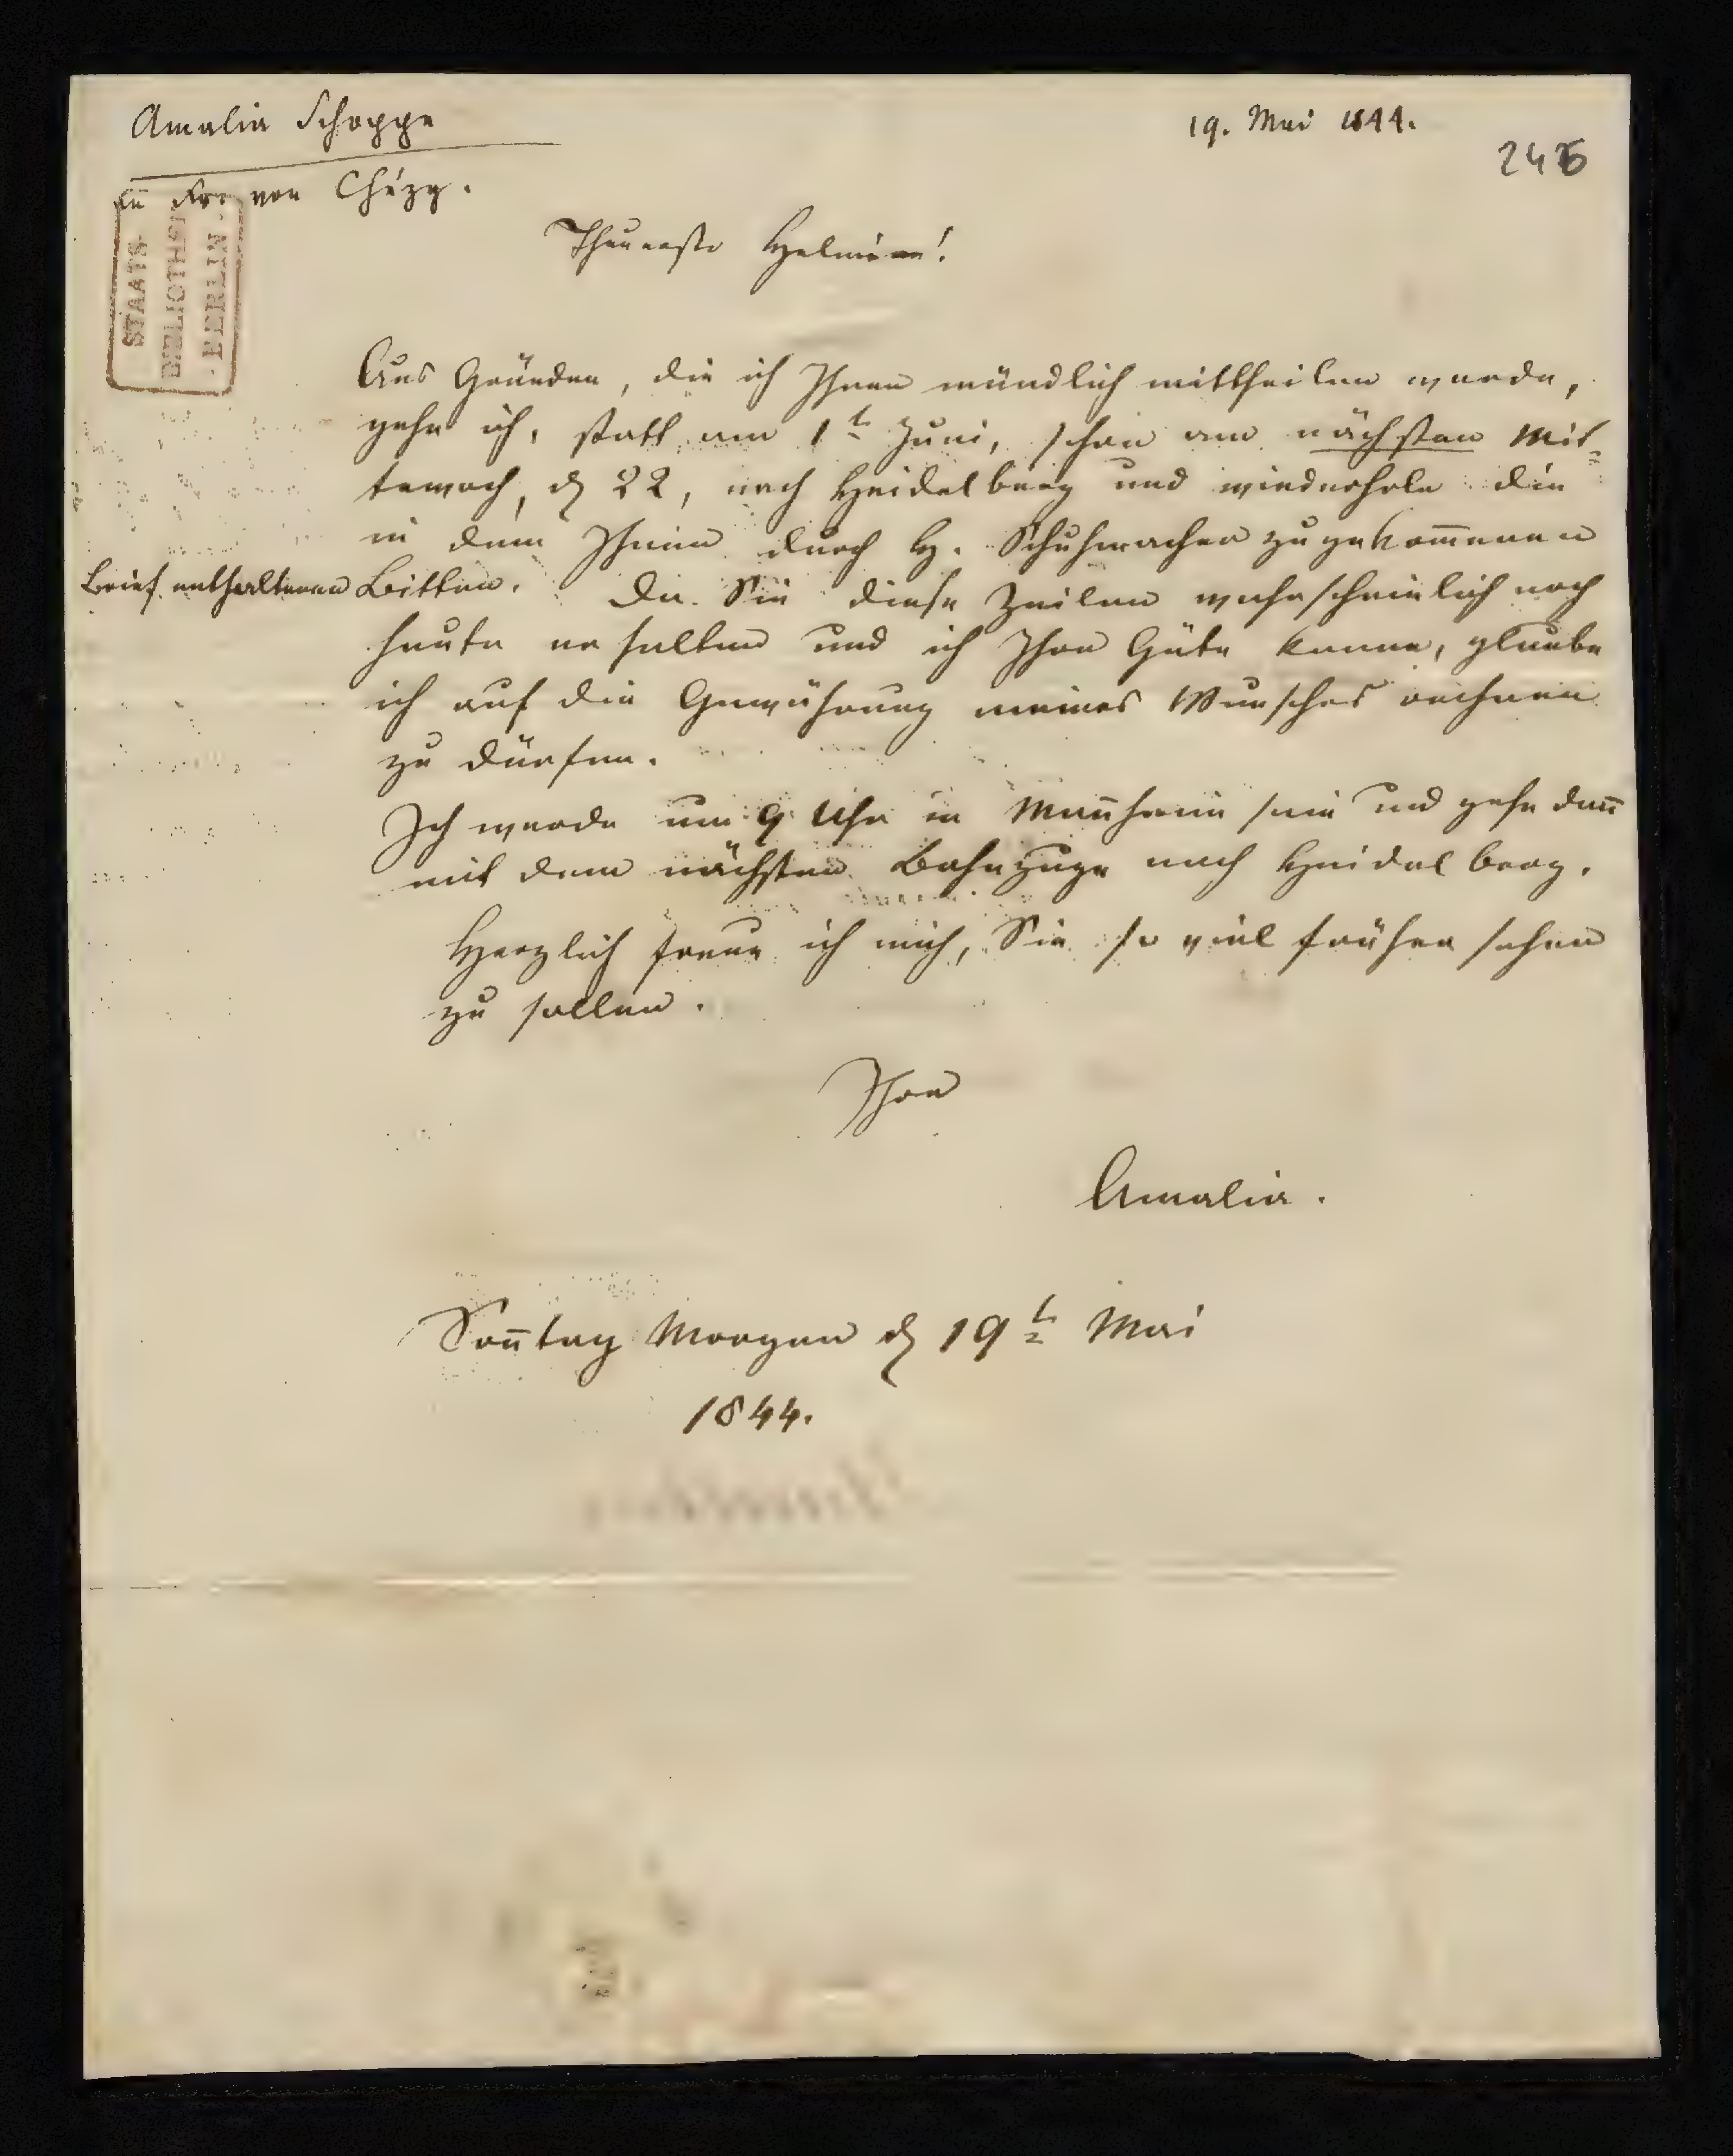 Amalia Schoppe
an Fr. von Chézy.
19. Mai 1844.
STAATS-
BIBLIOTHEK
· BERLIN ·
Theuerste Helmina!
Aus Gründen, die ich Ihnen mündlich mittheilen werde,
gehe ich, statt am 1t Juni, schon am nächsten Mit=
tewoch, d 22, nach Heidelberg und wiederhole die
in dem Ihnen durch H. Schuhmacher zugekom̄enen
Brief enthaltenen Bitten. Da Sie diese Zeilen wahrscheinlich noch
heute erhalten und ich Ihre Güte kenne, glaube
ich auf die Gewährung meines Wunsches rechnen
zu dürfen.
Ich werde um 9 Uhr in Man̄heim sein und gehe dan̄
mit dem nächsten Bahnzuge nach Heidelberg.
Herzlich freue ich mich, Sie so viel früher sehen
zu sollen.
Ihre
Amalia.
Son̄tag Morgen d 19t Mai
1844.